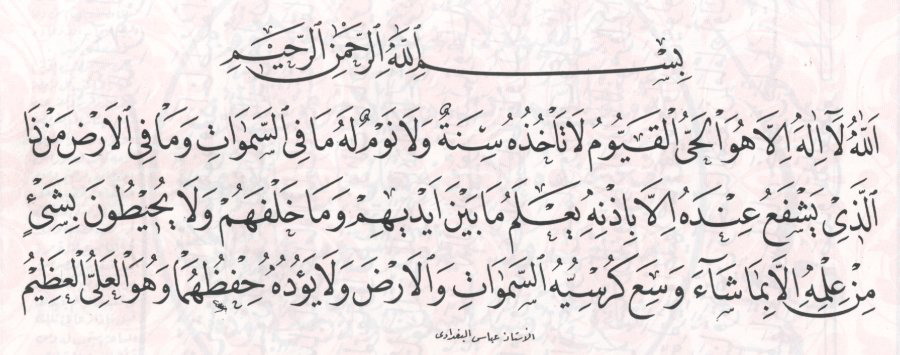 بِسْمِ ٱللَّهِ ٱلرَّحْمٰنِ ٱلرَّحِيْمِ
اَللّٰهُ لَآ اِلٰهَ اِلَّا هُوَ ٱلْحَىُّ ٱلْقَيُّومُ لَا تَأْخُذُهُ سِنَةٌ وَلَا نَوْمٌ لَهُ مَا فِى ٱلسَّمٰوَاتِ وَمَا فِى ٱلْاَرْضِ مَنْ ذَا
ٱلَّذِىْ يَشْفَعُ عِنْدَهُ اِلَّا بِاِذْنِهِ يَعْلَمُ مَا بَيْنَ اَيْدِيْهِمْ وَمَا خَلْفَهُمْ وَلَا يُحِيْطُونَ بِشَىْءٍ
مِنْ عِلْمِهِ اِلَّا بِمَا شَآءَ وَسِعَ كُرْسِيُّهُ ٱلسَّمٰوَاتِ وَٱلْاَرْضَ وَلَا يَؤُدُهُ حِفْظُهُمَا وَهُوَ ٱلْعَلِىُّ ٱلْعَظِيْمُ
الاستاذ عباس البغدادى